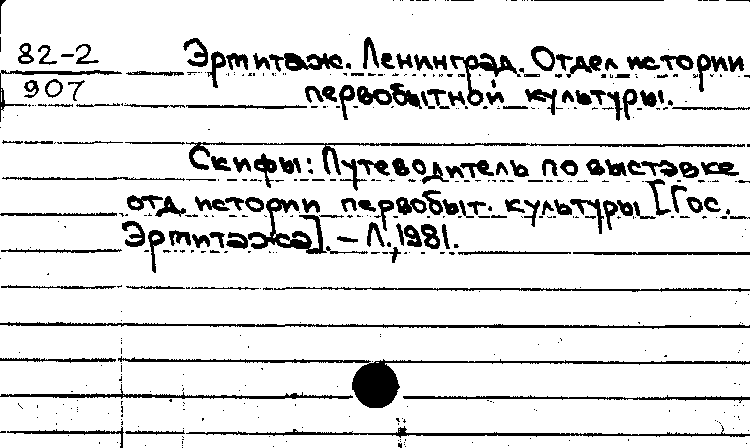 82-2
907
Эрмитаж. Ленинград. Отдел истории
первобытной культуры.
Скифы: Путеводитель по выставке
отд. истории первобыт. культуры [Гос.
Эрмитажа]. – Л., 1981.